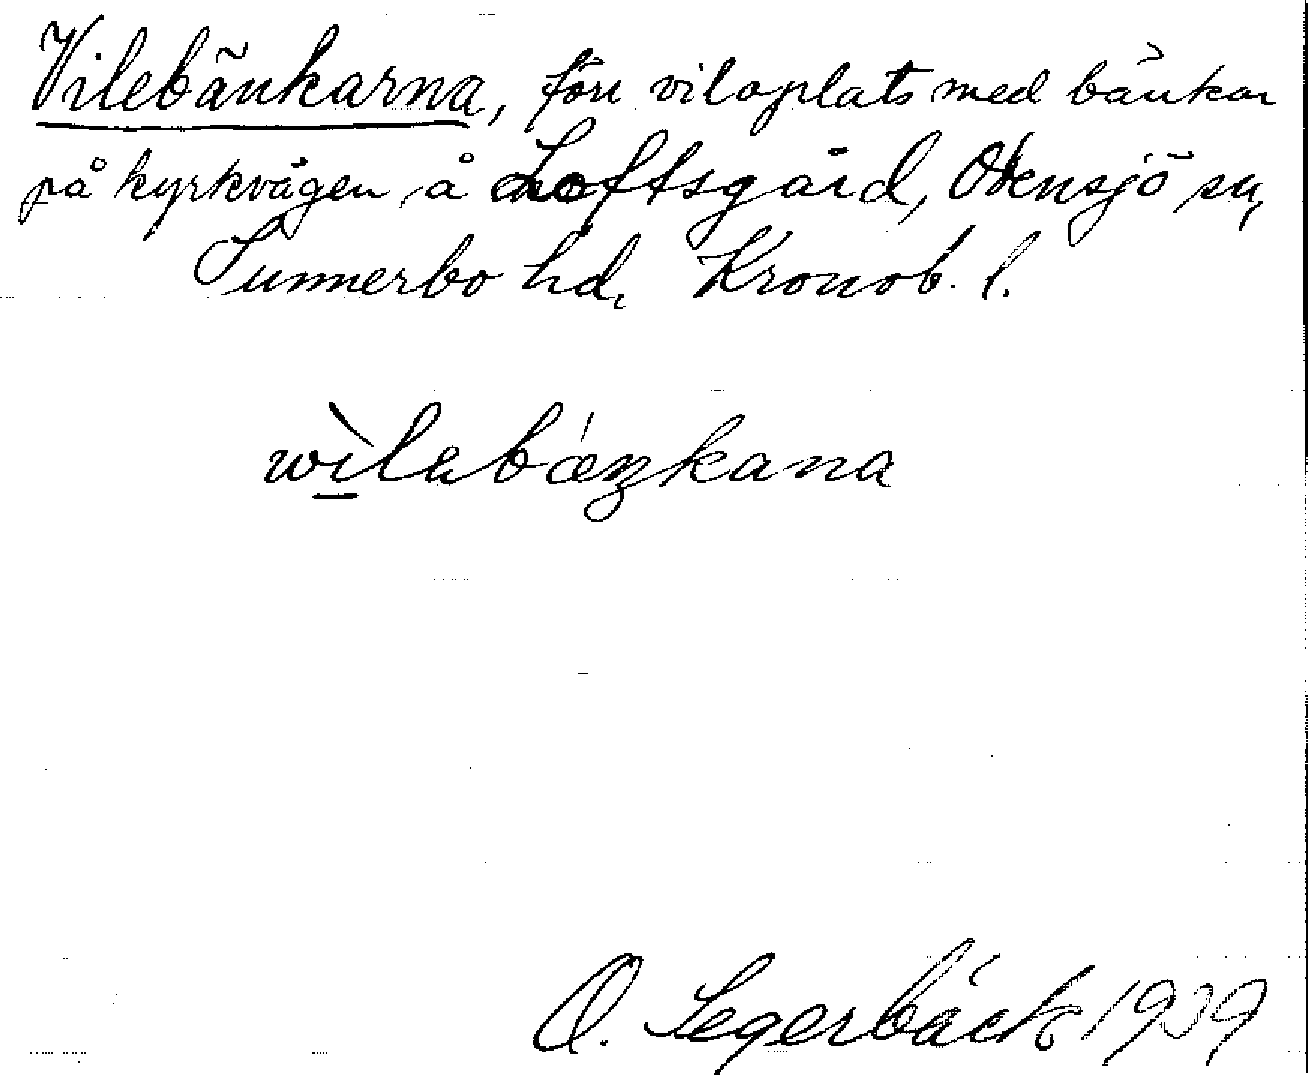 Vilebänkarna, förr viloplats med bänkar
på kyrkvägen å Loftsgård, Odensjö sn,
Sunnerbo hd, Kronob. l.
wìlabæŋkana
O. Segerbäck 1939